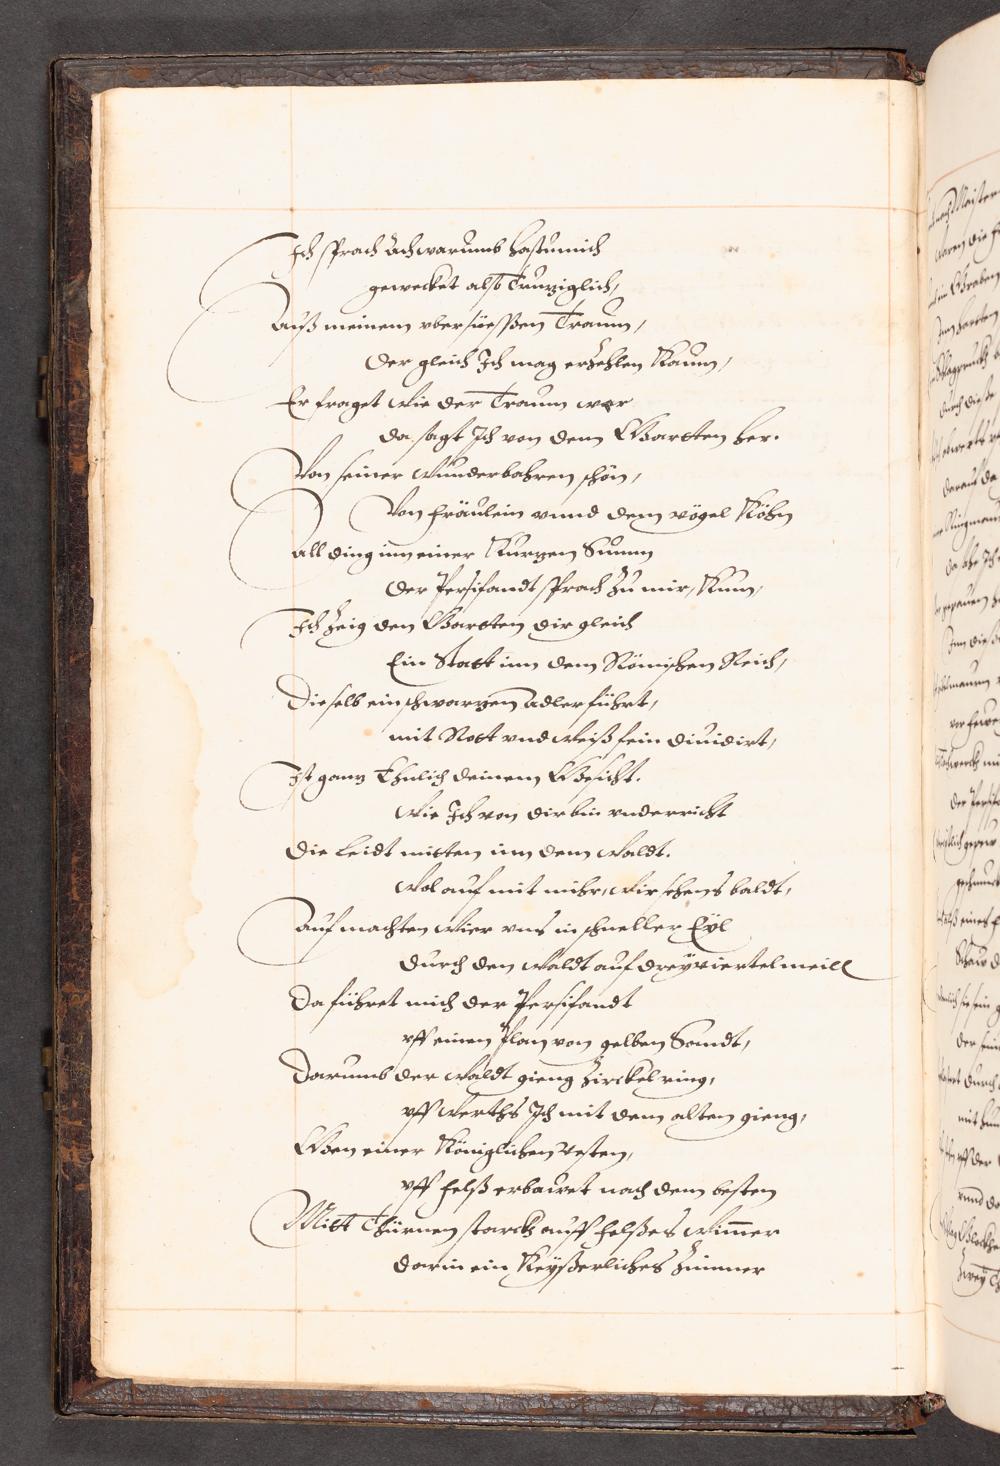 Ich sprach ach warumb hastu mich
gewecket also Trutziglich,
Auß meinem vbersüessen Traum,
der gleich Ich mag erzehlen Kaum,
Er fraget wie der Traum wer
da sagt Ich von dem Gartten her.
Von seiner wunderbahren schön,
Von fräulein vnnd dem vögel Köhn
all ding inn einer Kurtzen Summ
der Persifandt sprach zu mir, Kum,
Ich zeig den Gartten dir gleich
Ein Statt inn dem Römischen Reich,
Dieselb ein schwartzen adler führt,
mit Rott vnd weiß fein diuidirt,
Ist gantz Ehnlich deinem Gesicht.
wie Ich von dir bin vnderricht
die leidt mitten inn dem waldt.
wol auf mit mihr, wir sehens baldt,
Auf machten wier vns in schneller Eyl
durch den waldt auf drey viertel meill
Da führet mich der Persifandt
vff einen Plan von gelben Sandt,
Darumb der waldt gieng Zirckel ring,
vffwerths Ich mit dem alten gieng,
Gen einer Königlichen vesten,
vff felß erbawet nach dem besten
Mitt Thürnen starck auff felßes wimmer
darin ein Keyßerliches Zimmer